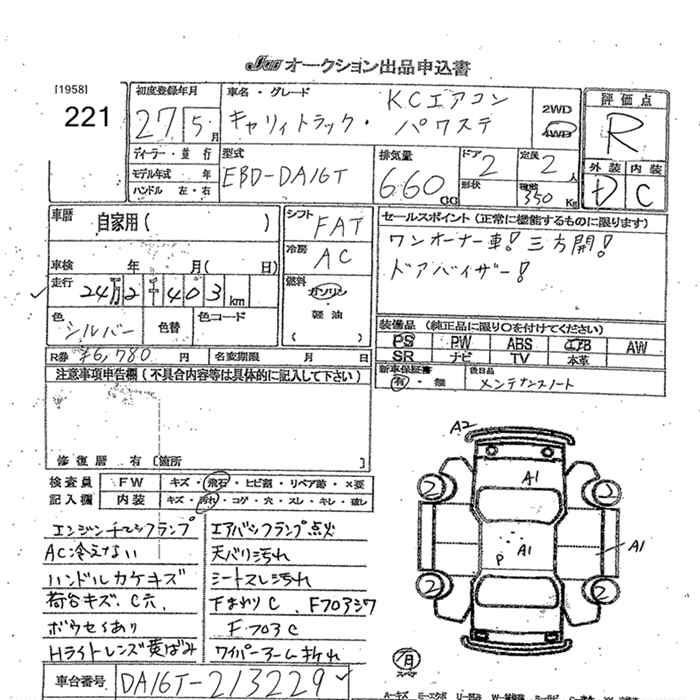 JU オークション出品申込書
[1958]
221
初度登録年月
27 5月
車名・グレード
KCエアコン
キャリイトラック・ パワステ
2WD
4WD
評価点
R
外装 内装
D C
ディーラー・並行
モデル年式 年
ハンドル 左・右
型式
EBD-DA16T
排気量
660 CC
ドア
2
形状
定員
2人
積載
350 Kg
車歴
自家用( )
車検 年 月( 日)
走行
24万2千403km
色
シルバー
色替
色コード
シフト
FAT
冷房
AC
燃料
ガソリン
・
軽油
( )
セールスポイント(正常に機能するものに限ります)
ワンオーナー車! 三方開!
ドアバイザー!
装備品(純正品に限り○を付けてください)
PS PW ABS エアB AW
SR ナビ TV 本革
R券 ¥6,780 円
名変期限 月 日
新車保証書
有・無
後日品
メンテナンスノート
注意事項申告欄(不具合内容等は具体的に記入して下さい)
修復歴 有 [箇所 ]
検査員 FW キズ・飛石・ヒビ割・リペア跡・×要
記入欄 内装 キズ・汚れ・コゲ・穴・スレ・キレ・破レ
エンジンチェックランプ
エアバッグランプ点灯
AC冷えない
天バリ汚れ
ハンドルカケキズ
シートスレ汚れ
荷台キズ、C穴
下まわりC、Fフロアシワ
ボウセイあり
FフロアC
Hライトレンズ黄ばみ
ワイパーアーム折れ
車台番号 DA16T-213229
A2
A1
2 2
P A1
A1
2 2
月
スペア